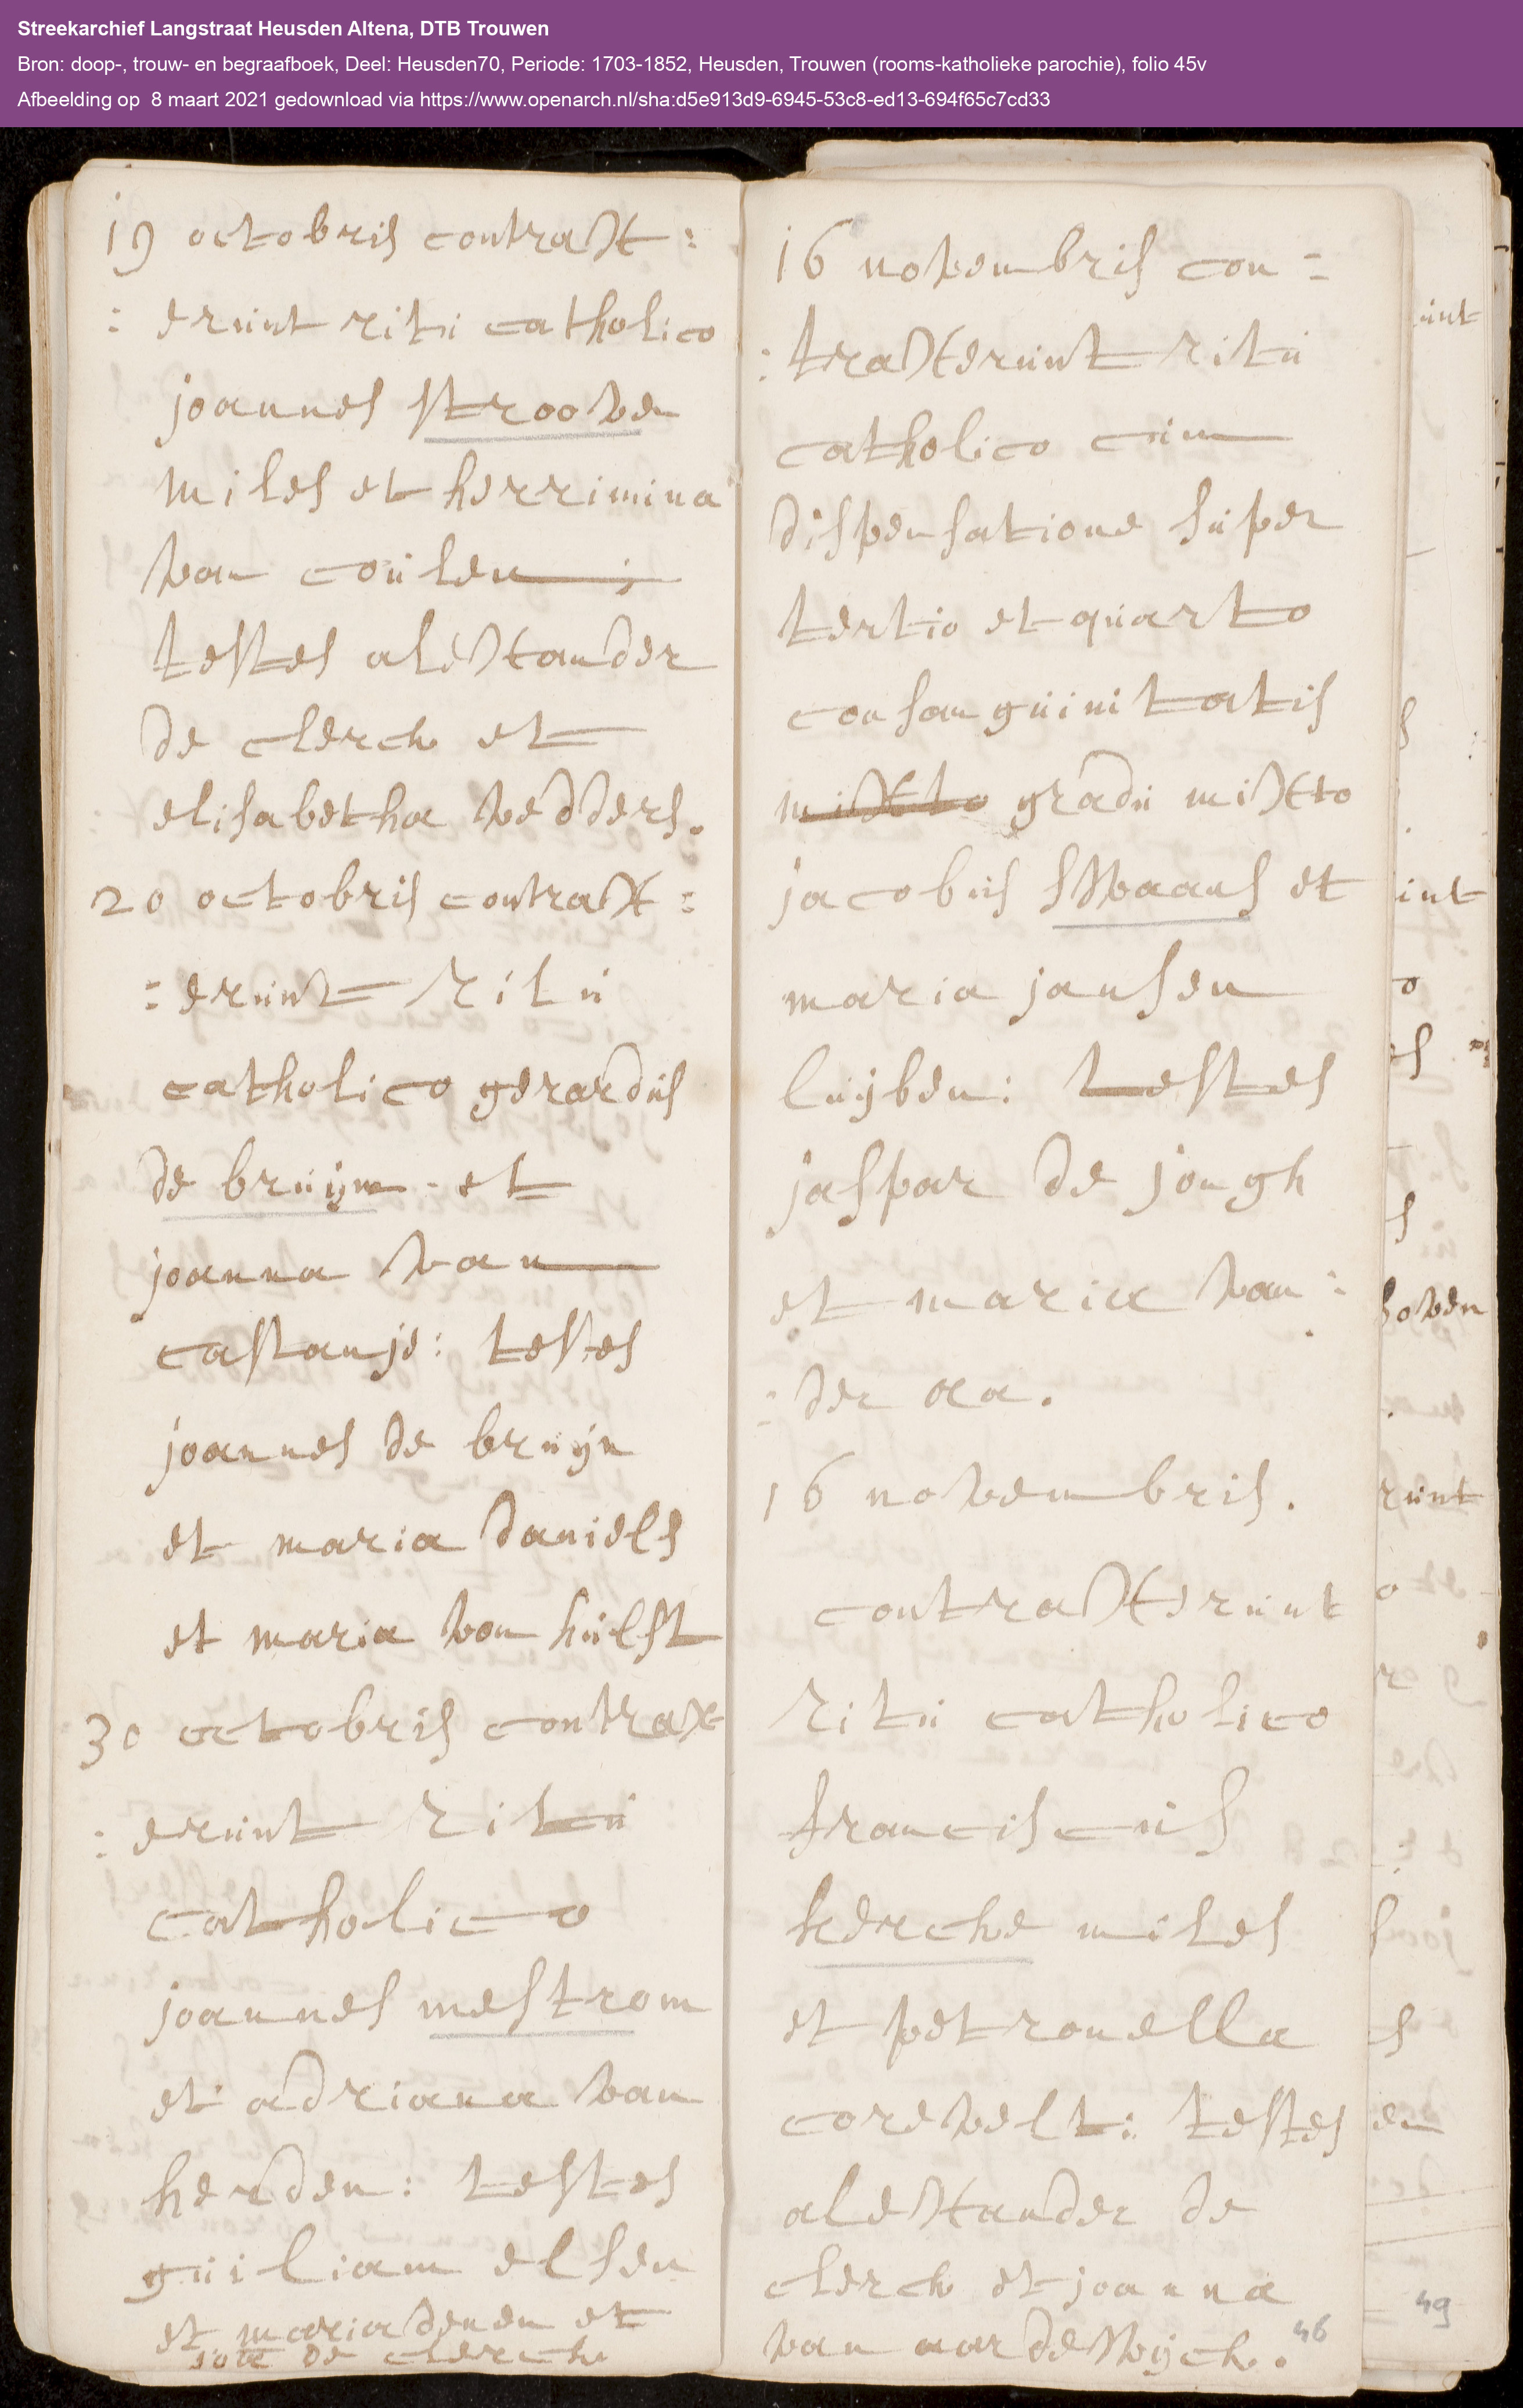 Streekarchief Langstraat Heusden Altena, DTB Trouwen
Bron: doop-, trouw- en begraafboek, Deel: Heusden70, Periode: 1703-1852, Heusden, Trouwen (rooms-katholieke parochie), folio 45v
Afbeelding op 8 maart 2021 gedownload via https://www.openarch.nl/sha:d5e913d9-6945-53c8-ed13-694f65c7cd33
19 octobris contrax:
: erunt ritu catholico
joannes strooven
miles et herrimina
van coulen;
testes alexander
de clerck et
elisabetha vedders.
20 octobris contrax:
: erunt ritu
catholico gerardus
de bruijn - et
joanna van
castanje: testes
joannes de bruijn
et maria daniels
et maria van hulst
30 octobris contrax
: erunt ritu
catholico
joannes mestrom
et adriana van
herden: testes
guiliam elsen
et maria denen et
de clerck
16 novembris con =
: traxerunt ritu
catholico cum
dispensatione super
tertio et quarto
consanguinitatis
mixto gradu mixto
jacobus swaans et
maria jansen
luijben: testes
jaspar de jongh
et maria van :
: der aa.
16 novembris.
contraxerunt
ritu catholico
franciscus
kercke miles
et petronella
corevelt: testes
alexander de
clerck et joanna
van aardewijck.
46
unt
int
o
oven
runt
o
en
49